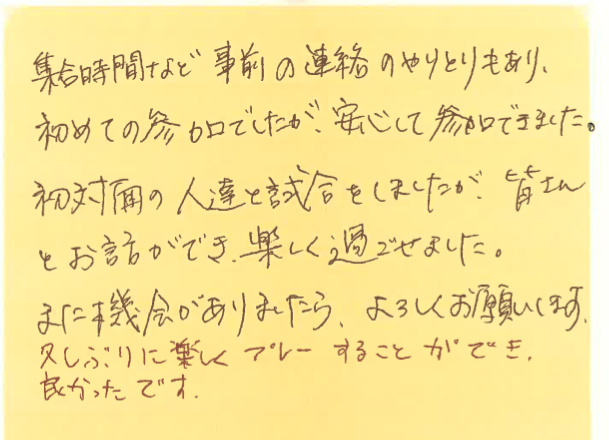 集合時間など事前の連絡のやりとりもあり、
初めての参加でしたが、安心して参加できました。
初対面の人達と試合をしましたが、皆さん
とお話ができ、楽しく過ごせました。
また機会がありましたら、よろしくお願いします。
久しぶりに楽しくプレーすることができ、
良かったです。